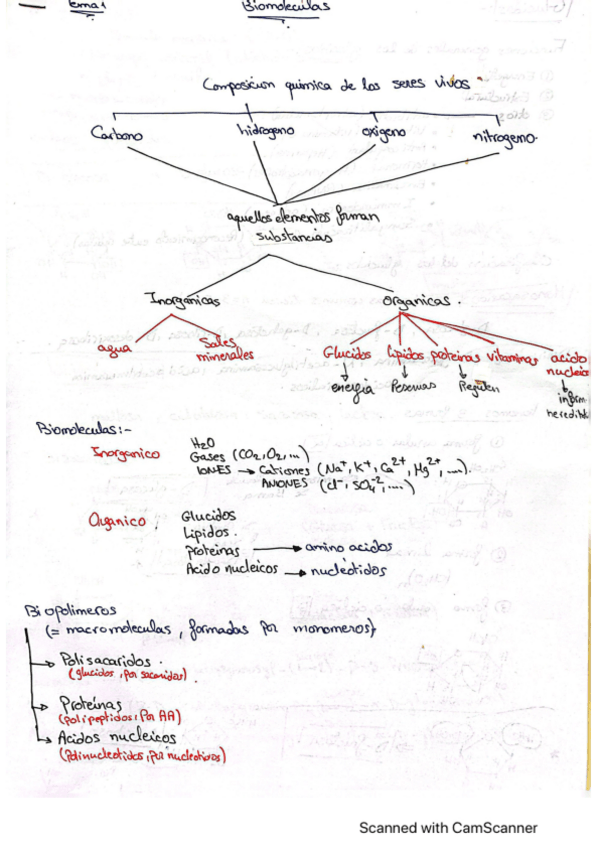 tema 1 Biomoleculas
Composicion quimica de los seres vivos
Carbono hidrogeno oxigeno nitrogeno.
aquellos elementos forman
substancias
Inorganicas organicas.
agua Sales
minerales
Glucidos lipidos proteinas vitaminas acido
nucleic
energia Reservas Regulen inform
heredit
Biomoleculas:-
Inorganico H2O
Gases (CO2, O2, ...)
IONES → Cationes (Na+, K+, Ca2+, Mg2+, ....).
ANIONES (Cl-, SO4-2, ....)
Organico. Glucidos
Lipidos.
proteinas → amino acidos
Acido nucleicos → nucleotidos
Biopolimeros
(= macromoleculas, formadas por monomeros)
→ Polisacaridos.
(glucidos, por sacaridos).
→ Proteínas
(polipeptidos, por AA)
→ Acidos nucleicos
(Polinucleotidos, por nucleotidos)
Scanned with CamScanner